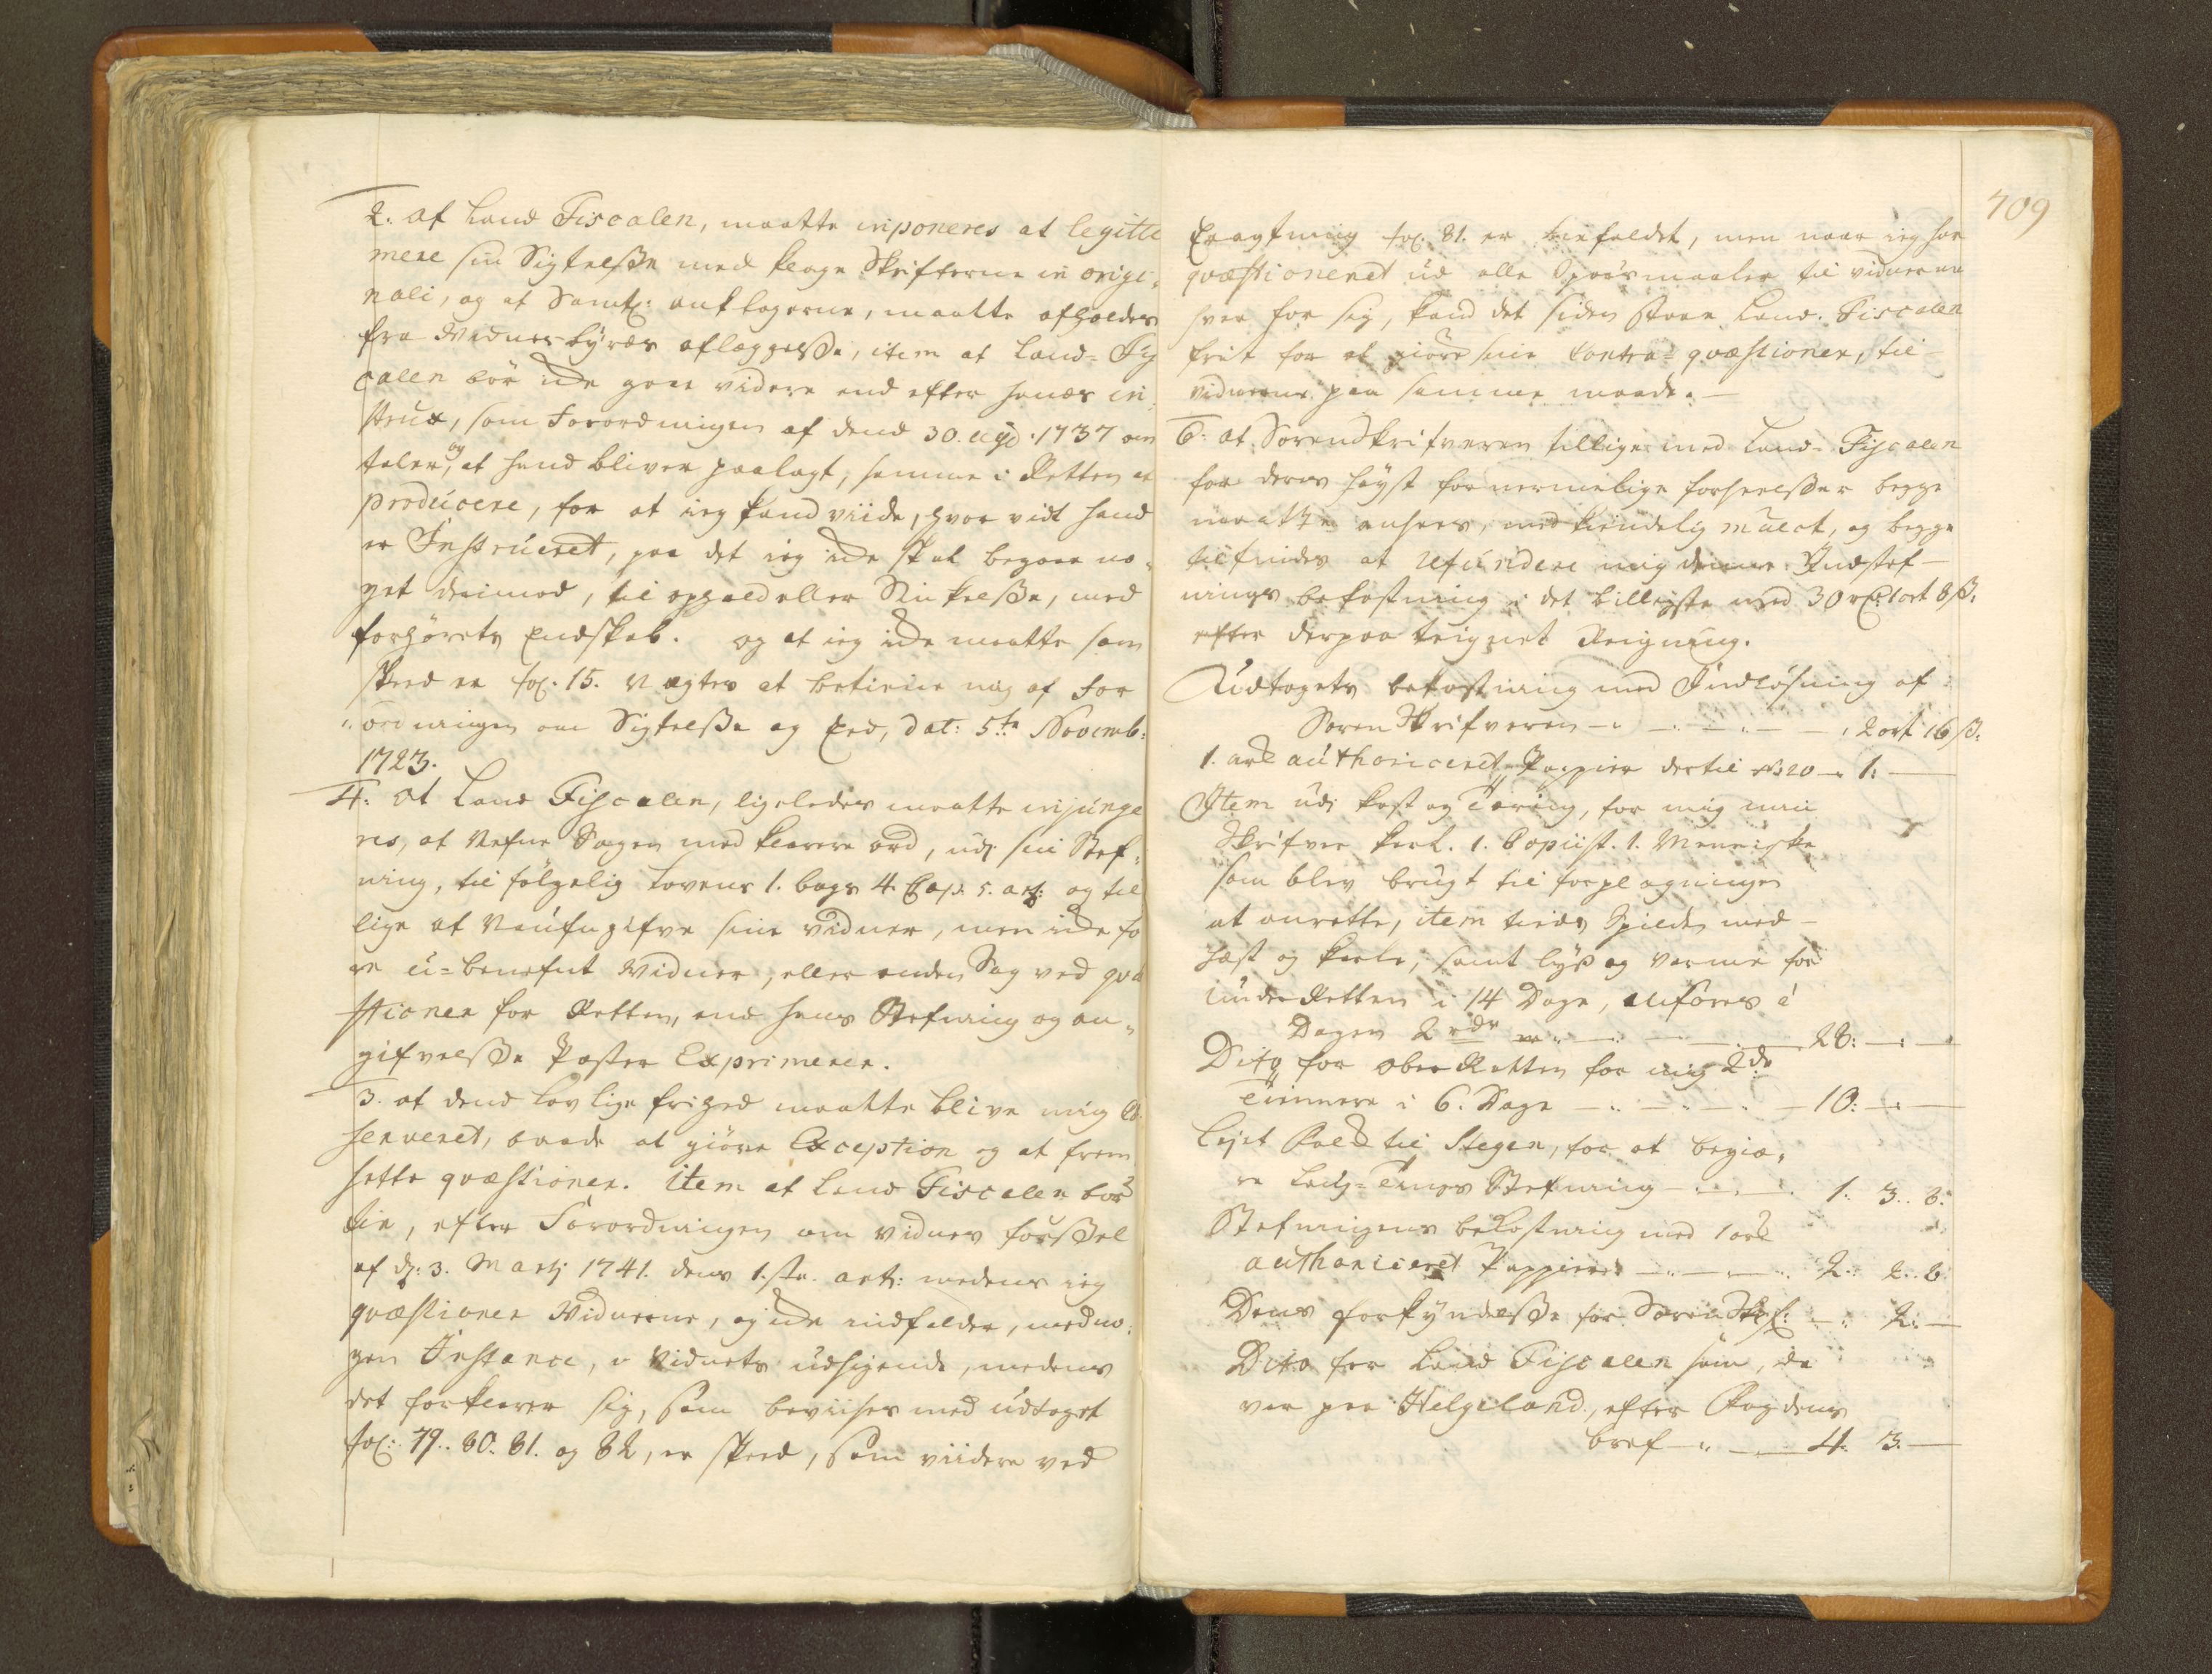 2. at Land Fiscalen, maatte inponeres at legitti
mere sin Sigtelsse med klage Skrifterne in origi,
nali, og at Samtl: anklagerne, maatte afholdes
fra Vidnes byrds aflæggelsse, item at Land= Fis
calen bör icke gaae videre end efter hans in,
strux, som Forordningen af dend 30. aug. 1737 om
taler, og at hand bliver paalagt, samme i Retten at
producere, for at ieg kand viide, hvor vidt hand
er Instrueret, paa det ieg icke skal begaae no,
get derimod, til ophold eller Sinkelsse, med
forhörets Endskab. og at ieg icke maatte som
skeed er fol. 15. nægtes at betiene mig af For
ordningen om Sigtelsse og Eed, Dat: 5te Novemb:
1723.
4: At Land Fiscalen, ligeledes maatte injunge
res, at Nefne Sagen med klarere ord, udj sin Stef,
ning, til fölgelig Lovens 1. bogs 4. Cap. 5. art: og til
lige at Naufngifve sine vidner, men icke fö
re u=benefnt Vidner, eller anden Sag ved qvæ
stioner for Retten, end hans Stefning og an,
gifvelsse Poster Exprimerer.
3. at dend lovlige friheed maatte blive mig ob
serveret, baade at giöre Exception og at frem
sette qvæstioner. item at Land Fiscalen bör
tie, efter Forordningen om vidners förssel
af d: 3. Martj 1741. dens 1.ste art: medens ieg
qvæstioner Vidnerne, og icke indfalder, med no,
gen Instance, i Vidnets udsigende, medens
det forklarer sig, som beviises med udtoget
fol: 79. 80. 81. og 82, er skeed, som viidere ved
709
Eragtning fol. 81. er biefaldet, men naar ieg har
qvæstioneret ud alle Spörsmaaler til vidnerne
hver for sig, kand det siden staae Land. Fiscalen
frit for at giöre sine Contra= qvæstioner, til
vidnerne paa samme maade.
6: At Sorenskrifveren tillige med Land= Fiscalen
for deres höyst fornermelige forseelsser begge
maatte ansees, med kiendelig mulct, og begge
tilfindes at refundere mig denne Indstef
nings bekostning i det billigste med 30 rd 1 ort 8 ß.
efter derpaa teignet Reigning.
Udtogets bekostning med Indlösning af
Soren Skrifveren 2 ort 16 ß.
1. ark authoriceret Pappier dertil 1:
Item udj kost og Tæring, for mig min
Skrifver karl. 1. Copiist. 1. Menniske
som blev brugt til forplegningen
at anrette, item tieds Spilde med
Hest og karle, samt lys og varme for
Under Retten i 14 Dage, anföres à
Dagen 2 rdr 28:
Dito for Ober Retten for mig 2de
Tiennere i 6. Dage 10:
Lejet Folck til Stegen, for at begiæ,
re Laug=Tings Stefning 1. 3. 8.
Stefningens bekostning med 1 ark
authoriceret Pappier 2. 2. 8.
Dens forkyndelsse for Soren Skrf: 2.
Dito for Land Fiscalen som, da
var paa Helgeland, efter Fogdens
bref 4. 3.